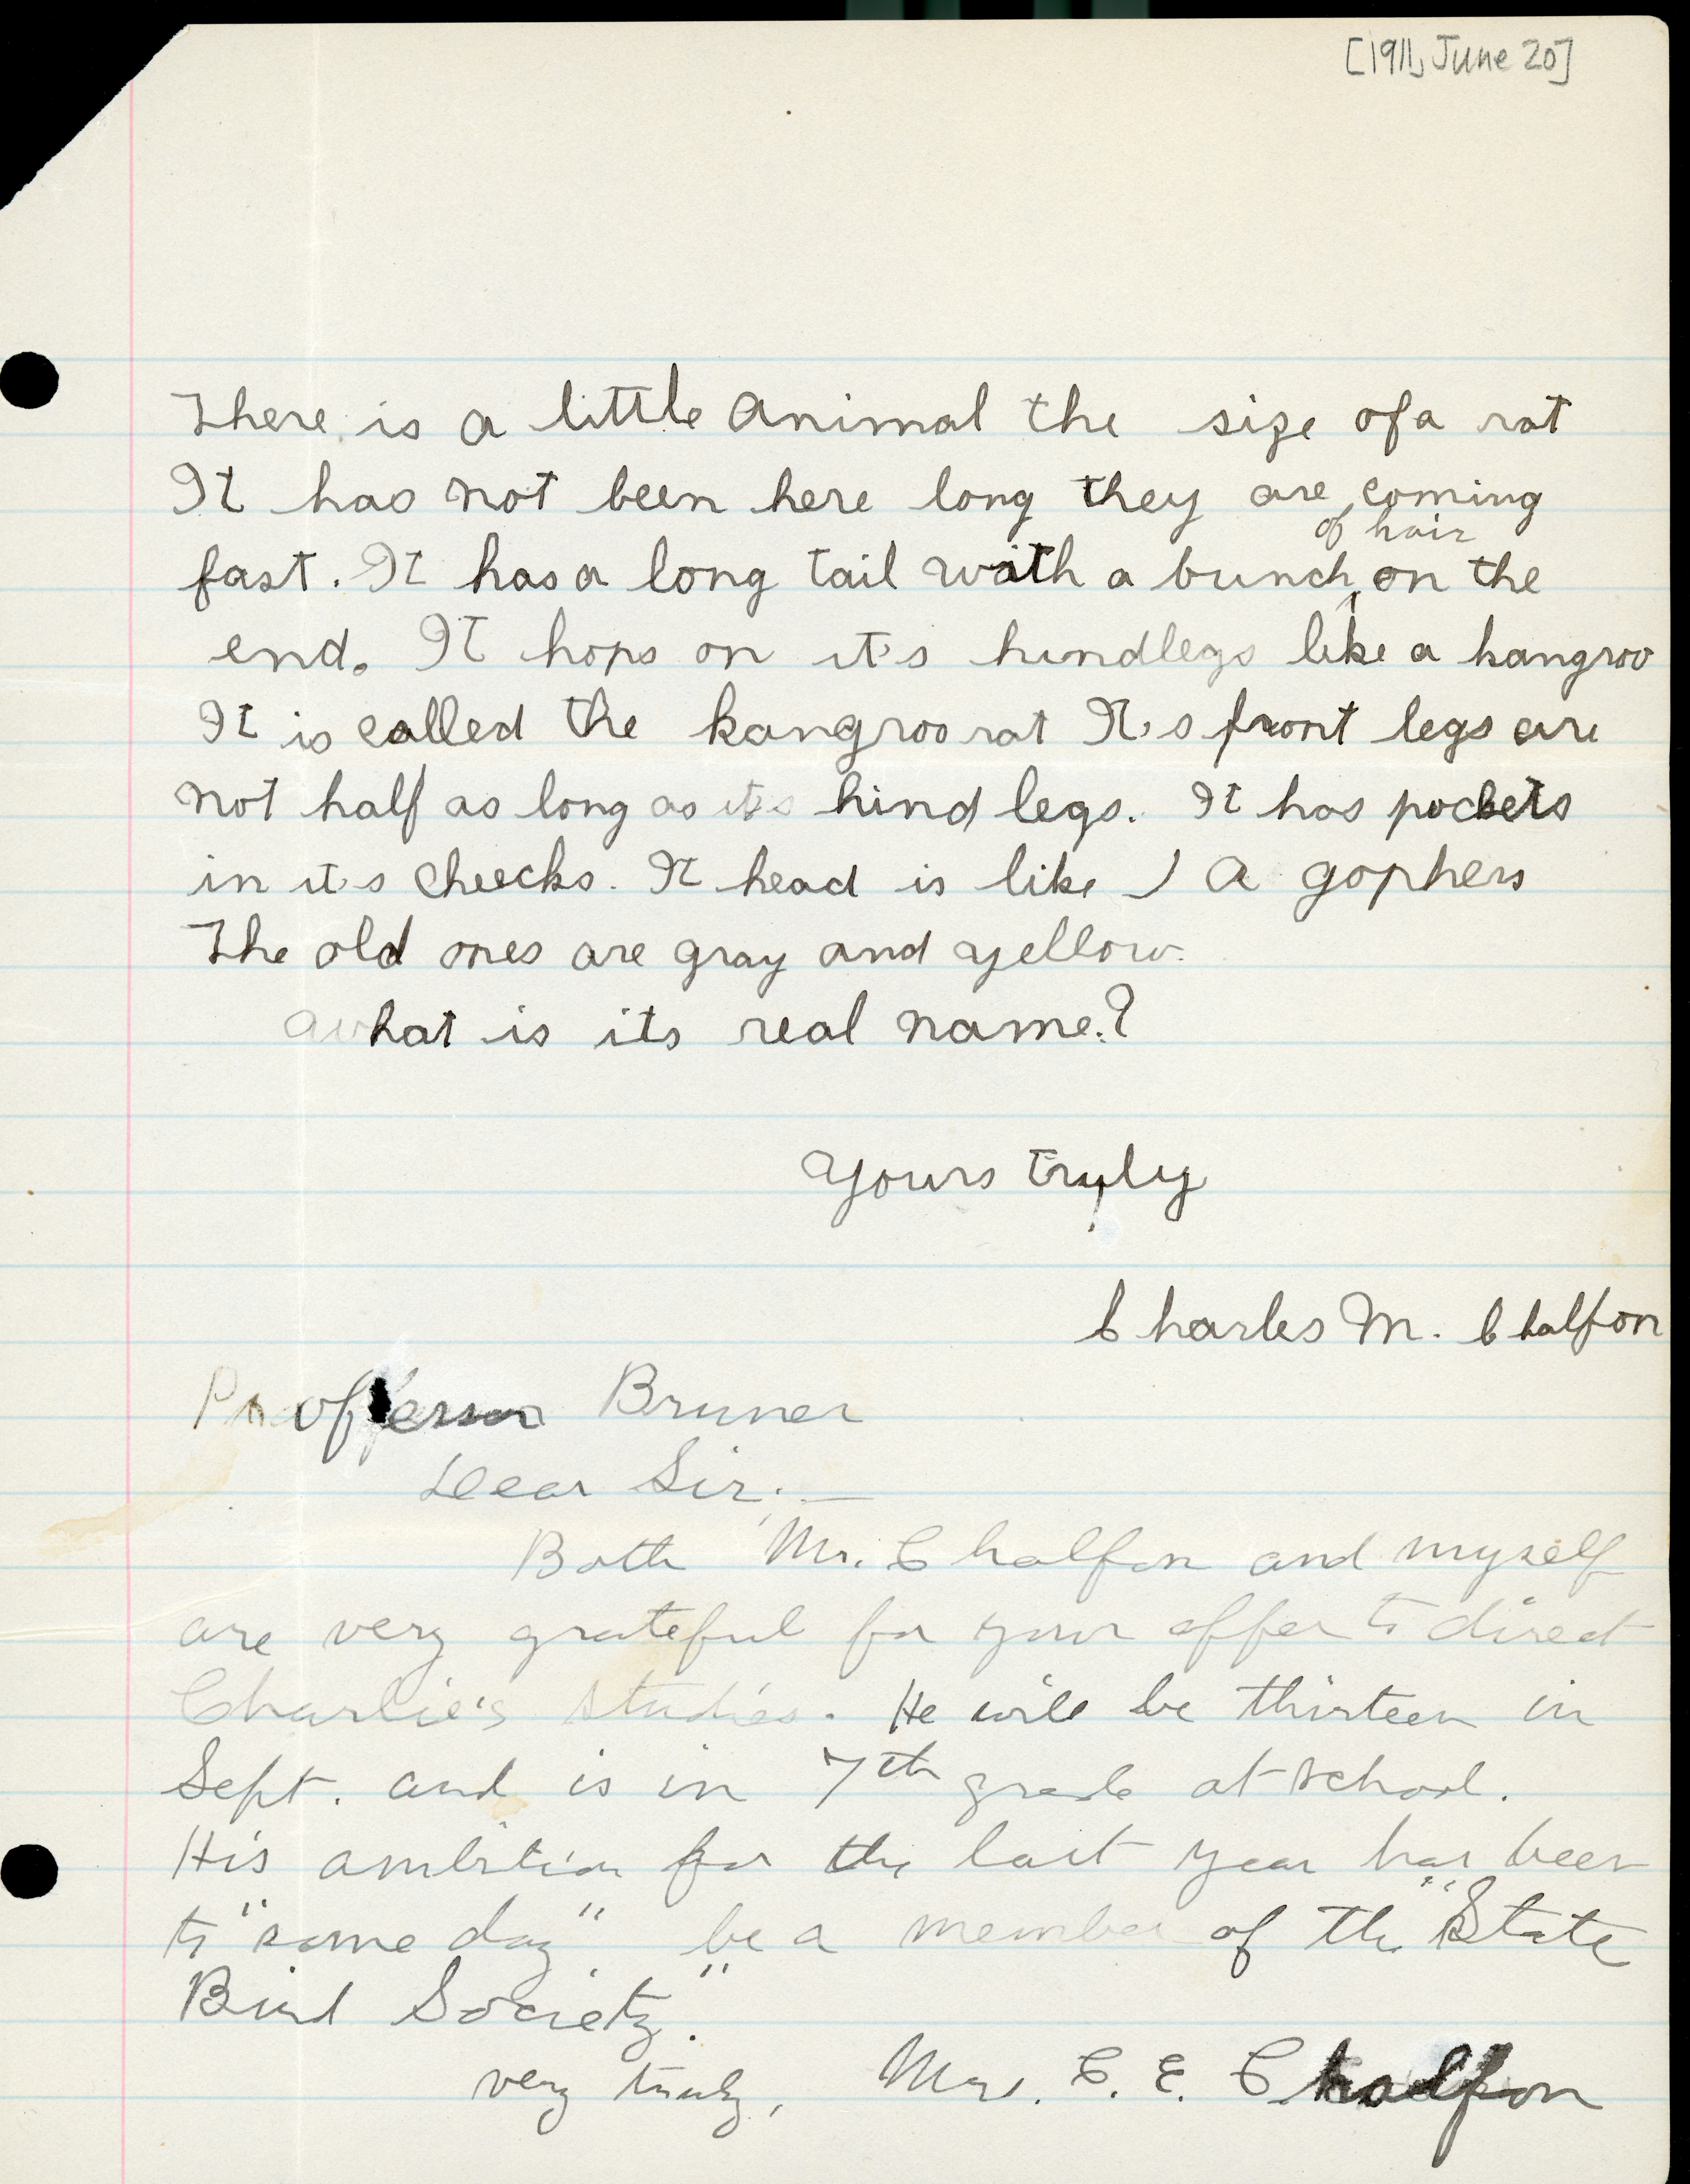 [1911, June 20]
There is a little animal the size of a rat
It has not been here long they are coming
of hair
fast. It has a long tail with a bunch on the
end. It hops on it's hindlegs like a kangroo
It is called the kangroo rat It's front legs are
not half as long as it's hind legs. It has pockets
in it's cheecks. It head is like a gophers
The old ones are gray and yellow.
what is its real name?
Yours truly
Charles M. Chalfon
Proffessor Bruner
Dear Sir:—
Both Mr. Chalfon and myself
are very grateful for your offer to direct
Charlie's studies. He will be thirteen in
Sept. and is in 7th grade at school.
His ambition for the last year has been
to "some day" be a member of the "State
Bird Society."
very truly, Mrs. C. E. Chalfon